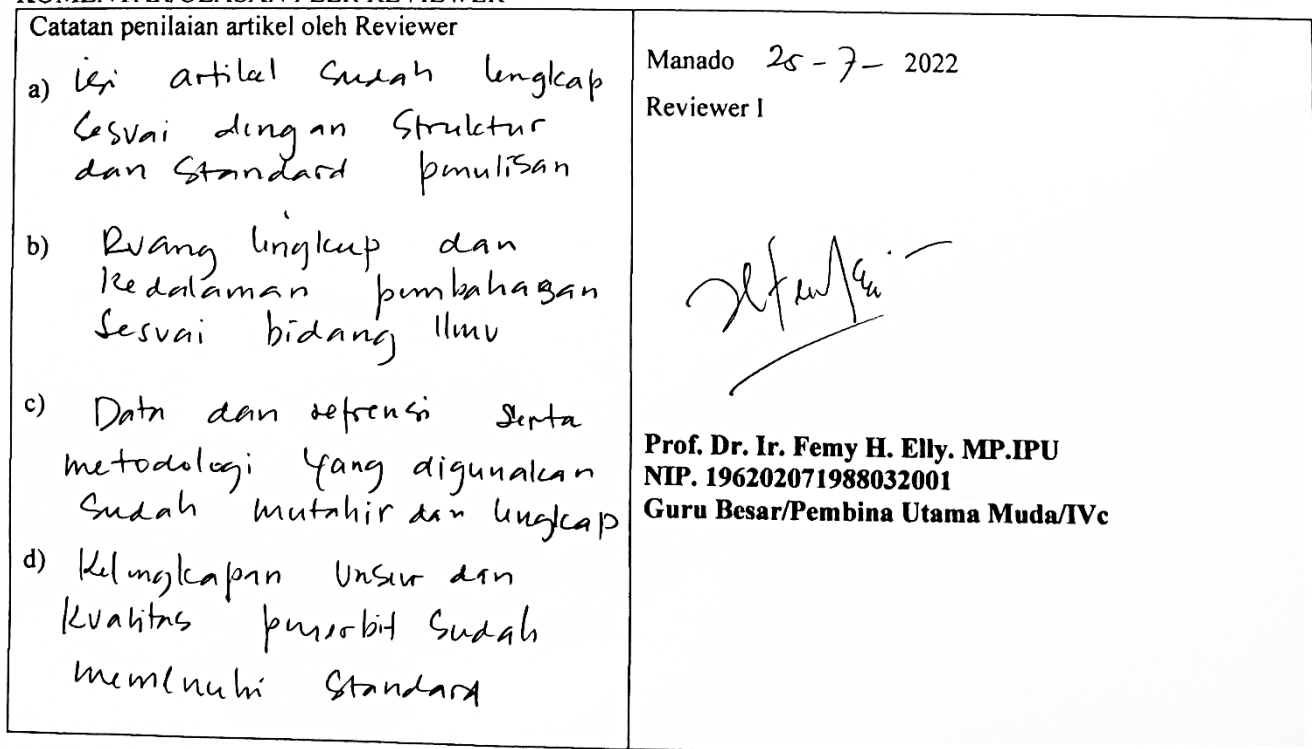 KOMENTAR/ULASAN PEER REVIEWER
Catatan penilaian artikel oleh Reviewer
a) isi artikel sudah lengkap
sesuai dengan struktur
dan Standard penulisan
b) Ruang lingkup dan
kedalaman pembahasan
Sesuai bidang Ilmu
c) Data dan refrensi serta
metodologi yang digunakan
sudah mutahir dan lengkap
d) Kelengkapan Unsur dan
kualitas penerbit sudah
memenuhi Standard
Manado 25 - 7 - 2022
Reviewer I
Prof. Dr. Ir. Femy H. Elly. MP.IPU
NIP. 196202071988032001
Guru Besar/Pembina Utama Muda/IVc